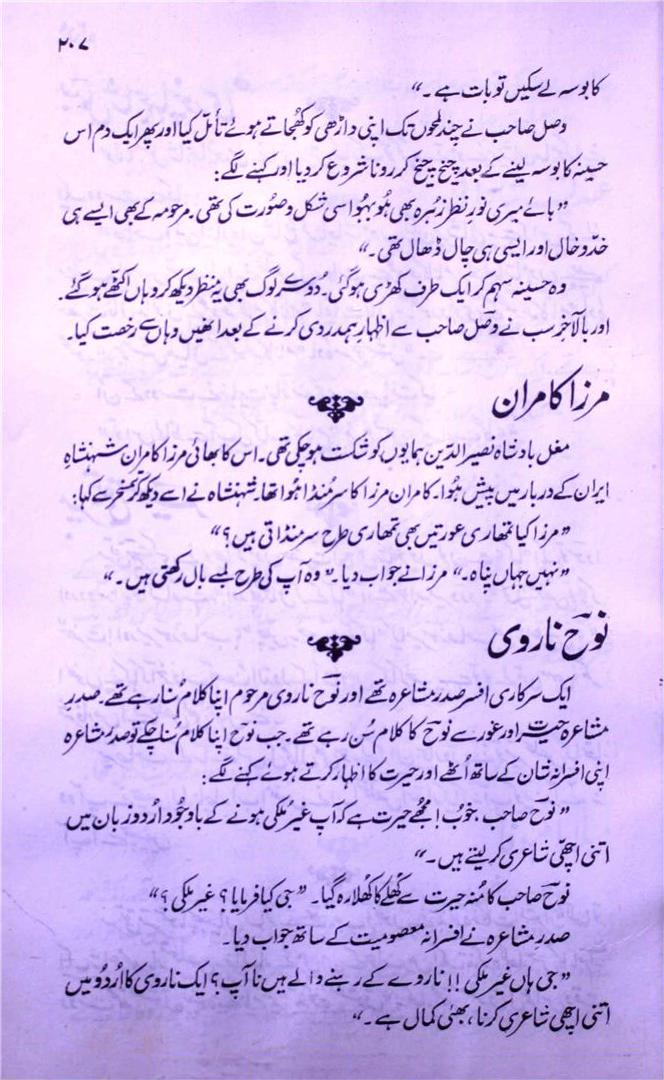 ۲۰۷
کا بوسہ لے سکیں تو بات ہے۔“
وصل صاحب نے چند لمحوں تک اپنی داڑھی کو کھجاتے ہوئے تأمل کیا اور پھر ایک دم اس
حسینہ کا بوسہ لینے کے بعد چیخ چیخ کر رونا شروع کر دیا اور کہنے لگے:
”ہائے میری نورِ نظر زہرہ بھی ہُو بہُو اسی شکل و صورت کی تھی۔ مرحومہ کے بھی ایسے ہی
خدّ و خال اور ایسی ہی چال ڈھال تھی۔“
وہ حسینہ سہم کر ایک طرف کھڑی ہو گئی۔ دُوسرے لوگ بھی یہ منظر دیکھ کر وہاں اکٹھے ہو گئے۔
اور بالآخر سب نے وصل صاحب سے اظہارِ ہمدردی کرنے کے بعد انھیں وہاں سے رخصت کیا۔
مرزا کامران
مغل بادشاہ نصیر الدّین ہمایوں کو شکست ہو چکی تھی۔ اس کا بھائی مرزا کامران شہنشاہِ
ایران کے دربار میں پیش ہُوا۔ کامران مرزا کا سر مُنڈا ہُوا تھا۔ شہنشاہ نے اسے دیکھ کر تمسخر سے کہا:
”مرزا کیا تمھاری عورتیں بھی تمھاری طرح سر منڈاتی ہیں؟“
”نہیں جہاں پناہ۔“ مرزا نے جواب دیا۔ ”وہ آپ کی طرح لمبے بال رکھتی ہیں۔“
نوحؔ ناروی
ایک سرکاری افسر صدرِ مشاعرہ تھے اور نوحؔ ناروی مرحوم اپنا کلام سُنا رہے تھے۔ صدرِ
مشاعرہ حیرت اور غور سے نوحؔ کا کلام سُن رہے تھے۔ جب نوحؔ اپنا کلام سُنا چکے تو صدرِ مشاعرہ
اپنی افسرانہ شان کے ساتھ اُٹھے اور حیرت کا اظہار کرتے ہوئے کہنے لگے:
”نوحؔ صاحب۔ خوب! مجھے حیرت ہے کہ آپ غیر مُلکی ہونے کے باوجُود اُردو زبان میں
اتنی اچھّی شاعری کر لیتے ہیں۔“
نوحؔ صاحب کا مُنہ حیرت سے کُھلے کا کُھلا رہ گیا۔ ”جی کیا فرمایا؟ غیر ملکی؟“
صدرِ مشاعرہ نے افسرانہ معصومیت کے ساتھ جواب دیا۔
”جی ہاں غیر ملکی!! ناروے کے رہنے والے ہیں نا آپ؟ ایک ناروی کا اُردُو میں
اتنی اچھّی شاعری کرنا، بھئی کمال ہے۔“